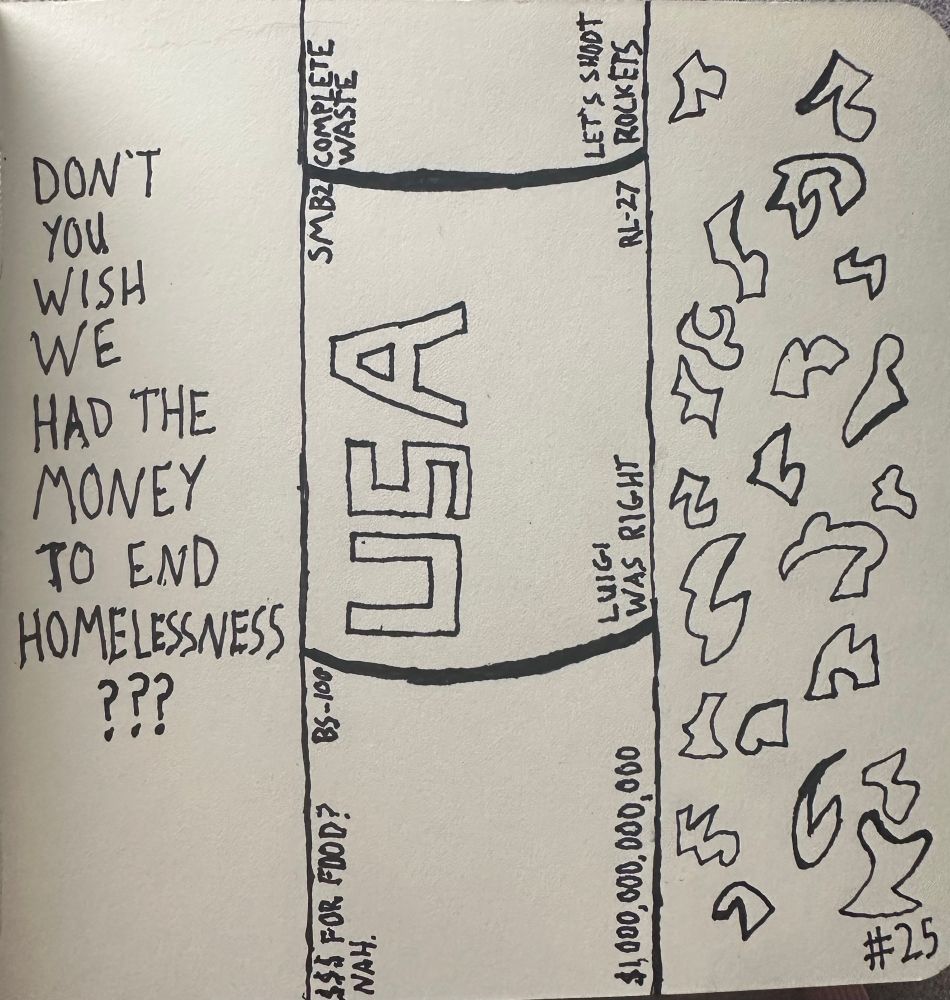 DON'T
YOU
WISH
WE
HAD THE
MONEY
TO END
HOMELESSNESS
???
COMPLETE
WASTE
SMB2
USA
BS-100
$$$ FOR FOOD?
NAH.
LET'S SHOOT
ROCKETS
RL-27
LUIGI
WAS RIGHT
$1,000,000,000,000
#25